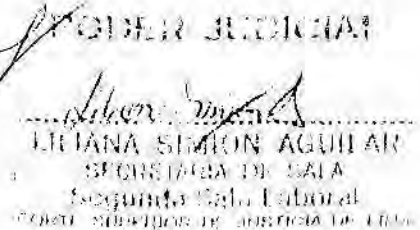 PODER JUDICIAL
LILIANA SIMION AGUILAR
SECRETARIA DE SALA
Segunda Sala Laboral
CORTE SUPERIOR DE JUSTICIA DE LIMA